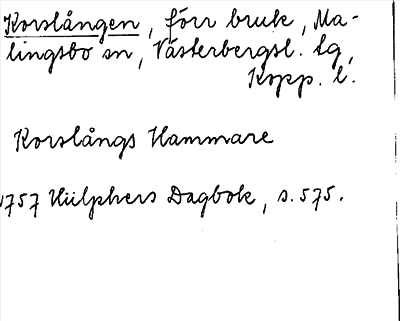 Korslången, förr bruk, Ma-
lingsbo sn, Västerbergsl. tg,
Kopp. l.
Korslångs Hammare
1757 Hülphers Dagbok, s. 575.